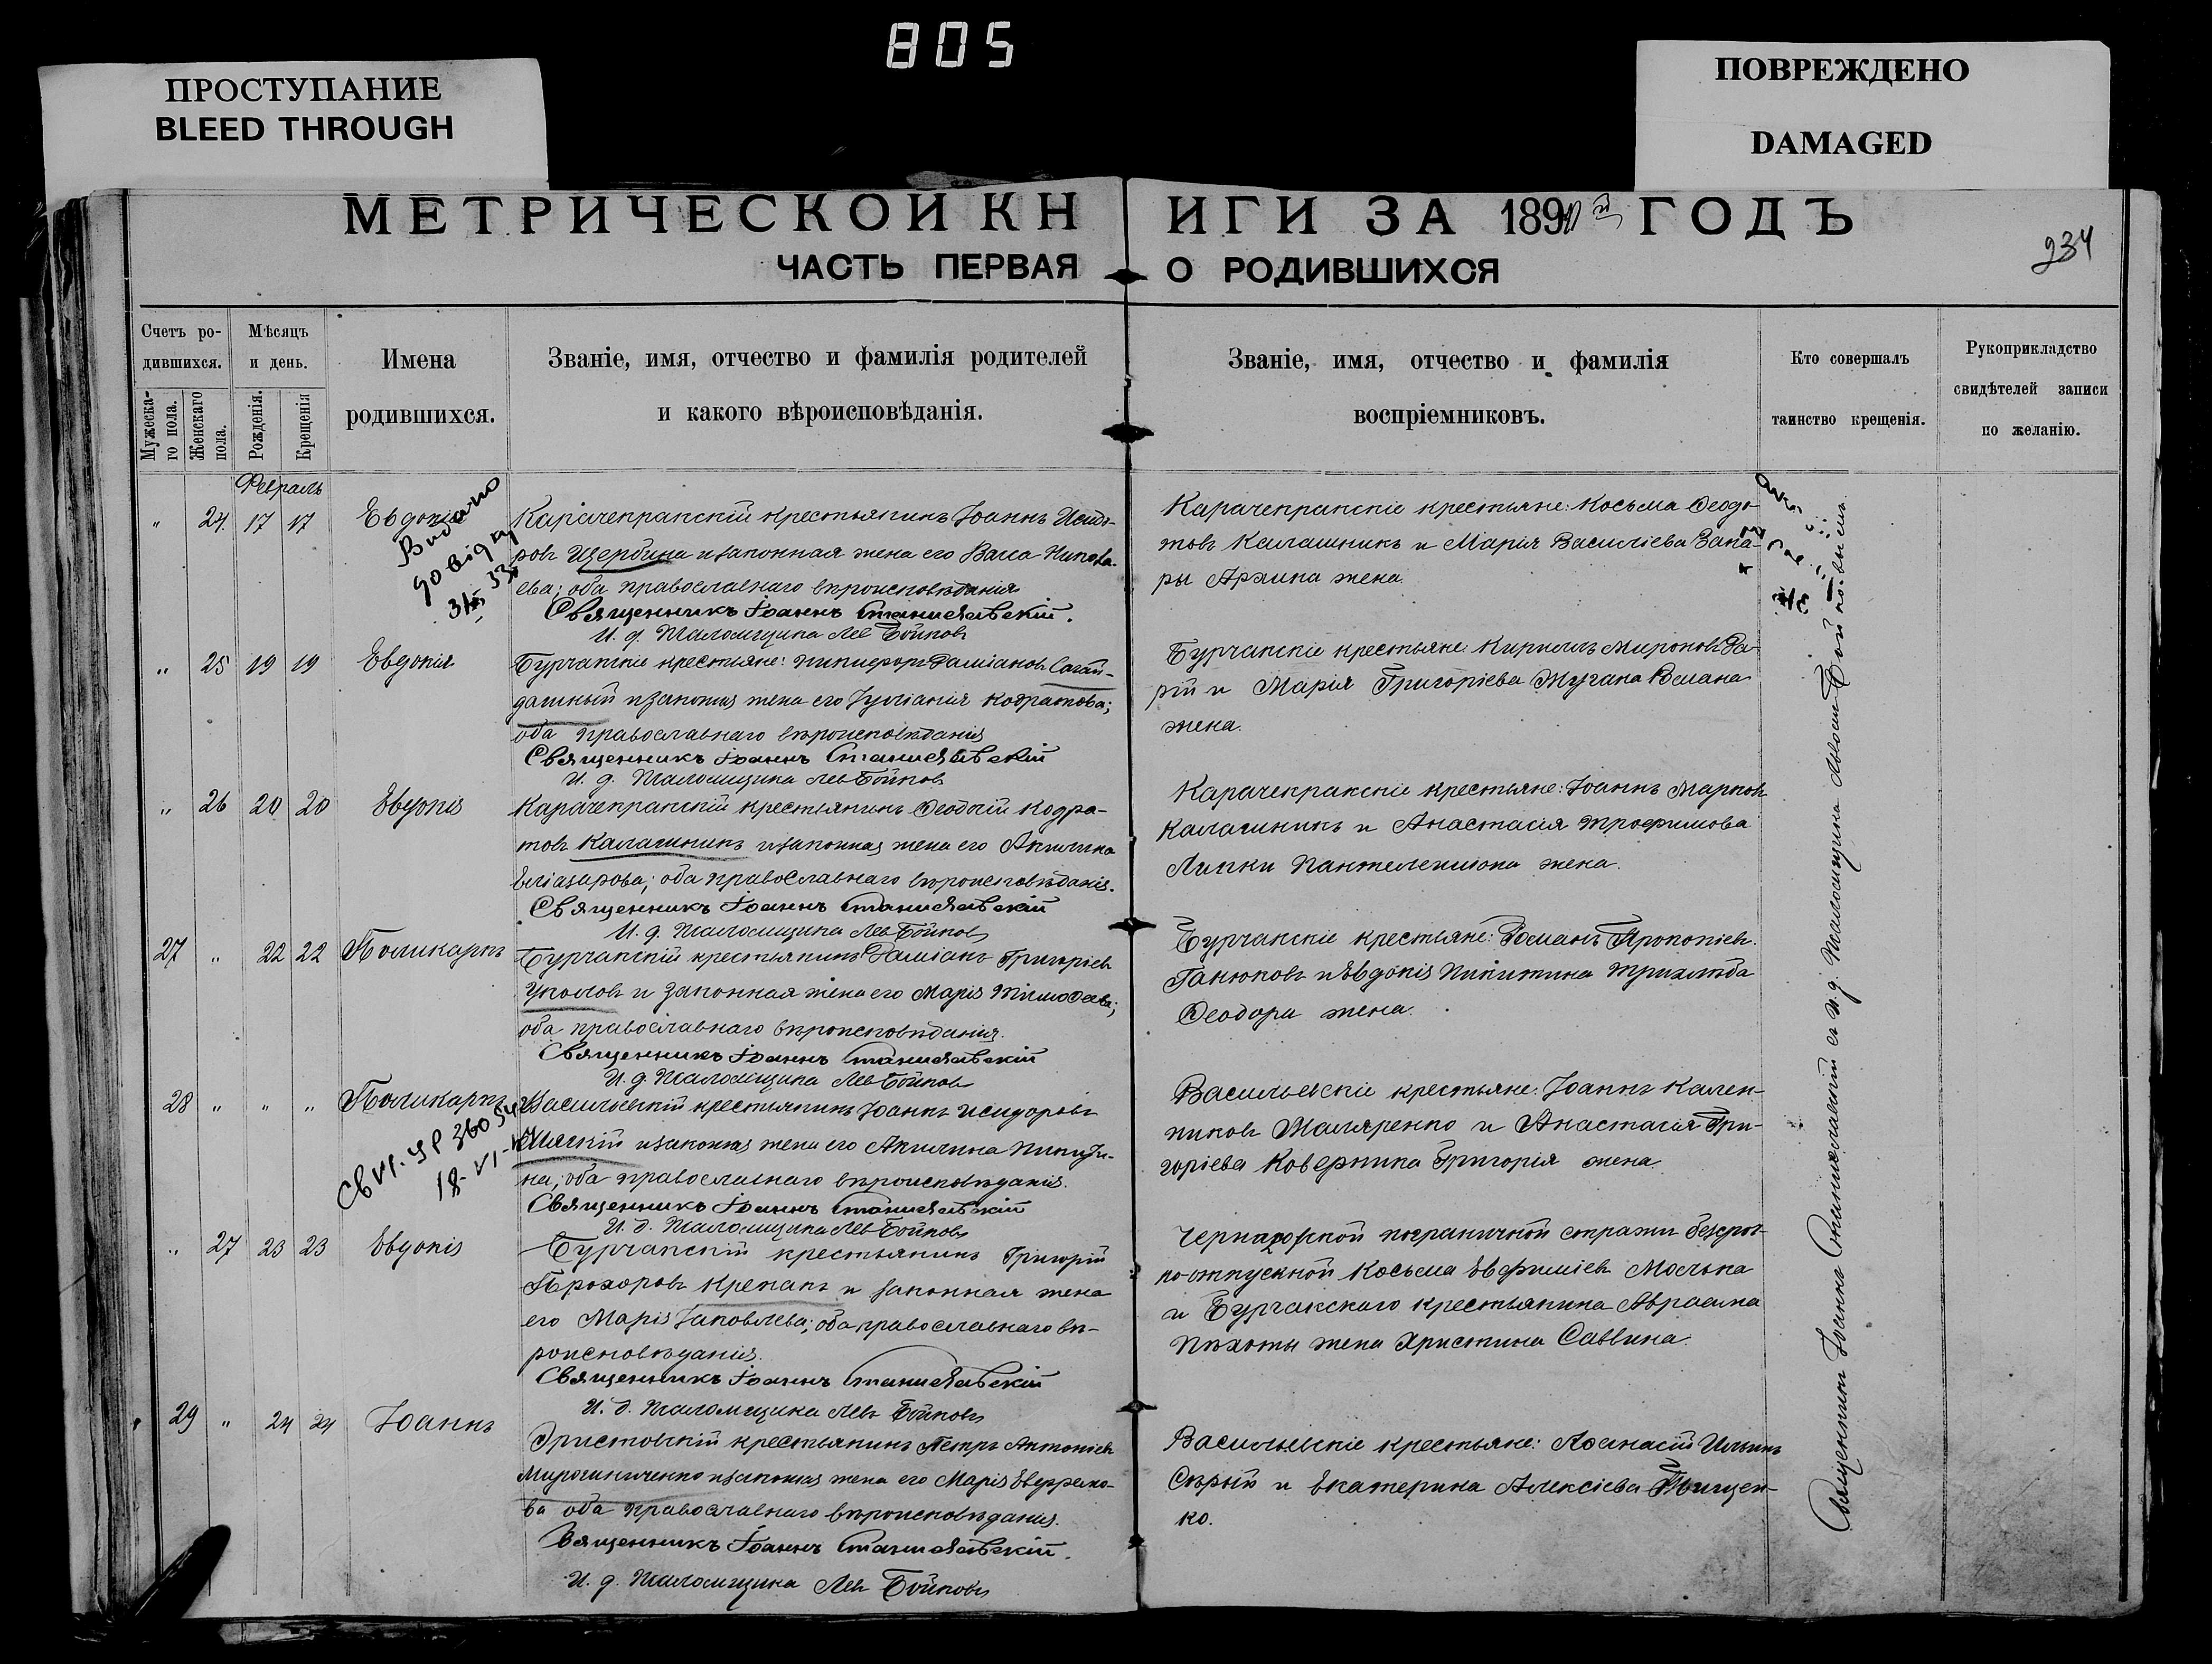 805
ПРОСТУПАНИЕ
BLEED THROUGH
ПОВРЕЖДЕНО
DAMAGED
МЕТРИЧЕСКОЙ КНИГИ ЗА 189 ГОДЪ
234
ЧАСТЬ ПЕРВАЯ О РОДИВШИХСЯ
Счетъ ро-
дившихся.
Мужеска-
го пола.
Женскаго
пола.
Мѣсяцъ
и день.
Рожденія.
Крещенія
Имена
родившихся.
Званіе, имя, отчество и фамилія родителей
и какого вѣроисповѣданія.
Званіе, имя, отчество и фамилія
воспріемниковъ.
Кто совершалъ
таинство крещенія.
Рукоприкладство
свидѣтелей записи
по желанію.
Февраль
" 24 17 17 Евдокія
Видано
довідку
Карачекракскій крестьянинъ Іоаннъ Исидо-
ровъ Щербина и законная жена его Васса Никола-
ева; оба православнаго вѣроисповѣданія
Священникъ Іоаннъ Станиславскій.
И. д. Псаломщика Лев Бойковъ
Карачекракскіе крестьяне: Косьма Ѳеодо-
товъ Калашникъ и Марія Василіева
ры Архипа жена.
" 25 19 19 Евдокія
Бурчакскіе крестьяне: Никифоръ Даміановъ Сагай-
дашный и законная жена его Іуліанія Кодратова;
оба православнаго вѣроисповѣданія
Священникъ Іоаннъ Станиславскій
И. д. Псаломщика Лев Бойковъ
Бурчакскіе крестьяне: Кириллъ Мироновъ
рій и Марія Григоріева
жена.
" 26 20 20 Евдокія
Карачекракскій крестьянинъ Кодра-
товъ Калашникъ и законная жена его Акилина
Еліазарова; оба православнаго вѣроисповѣданія.
Священникъ Іоаннъ Станиславскій
И. д. Псаломщика Лев Бойковъ
Карачекракскіе крестьяне: Іоаннъ Марковъ
Калашникъ и Анастасія Трофимова
Липки Пантелеимона жена.
27 " 22 22 Поликарпъ
Бурчакскій крестьянинъ Даміанъ Григоріевъ
Уколовъ и законная жена его Марія Тимоѳеева;
оба православнаго вѣроисповѣданія.
Священникъ Іоаннъ Станиславскій
И. д. Псаломщика Лев Бойковъ
Бурчакскіе крестьяне: Романъ Прокопіевъ
Ганюковъ и Евдокія Никитина Трихлѣба
Ѳеодора жена.
28 " " " Поликарпъ
18-VI-
Васильевскій крестьянинъ Іоаннъ Исидоровъ
и законная жена его Акилина Никити-
на; оба православнаго вѣроисповѣданія.
Священникъ Іоаннъ Станиславскій
И. д. Псаломщика Лев Бойковъ
Васильевскіе крестьяне: Іоаннъ Кален-
никовъ Маляренко и Анастасія Гри-
горіева Коверника Григорія жена.
" 27 23 23 Евдокія
Бурчакскій крестьянинъ Григорій
Прохоровъ Крепакъ и законная жена
его Марія Іаковлева; оба православнаго вѣ-
роисповѣданія.
Священникъ Іоаннъ Станиславскій
И. д. Псаломщика Левъ Бойковъ
пограничной стражи безсроч-
но-отпускной Косьма Евфиміевъ
и Бурчакскаго крестьянина Авраама
Пѣхоты жена Христина Саввина.
29 " 24 24 Іоаннъ
Эристовскій крестьянинъ Петръ Антоніевъ
Мирошниченко и законная жена его Марія
ва оба православнаго вѣроисповѣданія.
Священникъ Іоаннъ Станиславскій.
И. д. Псаломщика Лев Бойковъ
Васильевскіе крестьяне: Аѳанасій Ильинъ
Сѣрый и Екатерина Алексіева
ко.
Священникъ Іоаннъ Станиславскій съ и. д. Псаломщика Львомъ Бойковымъ